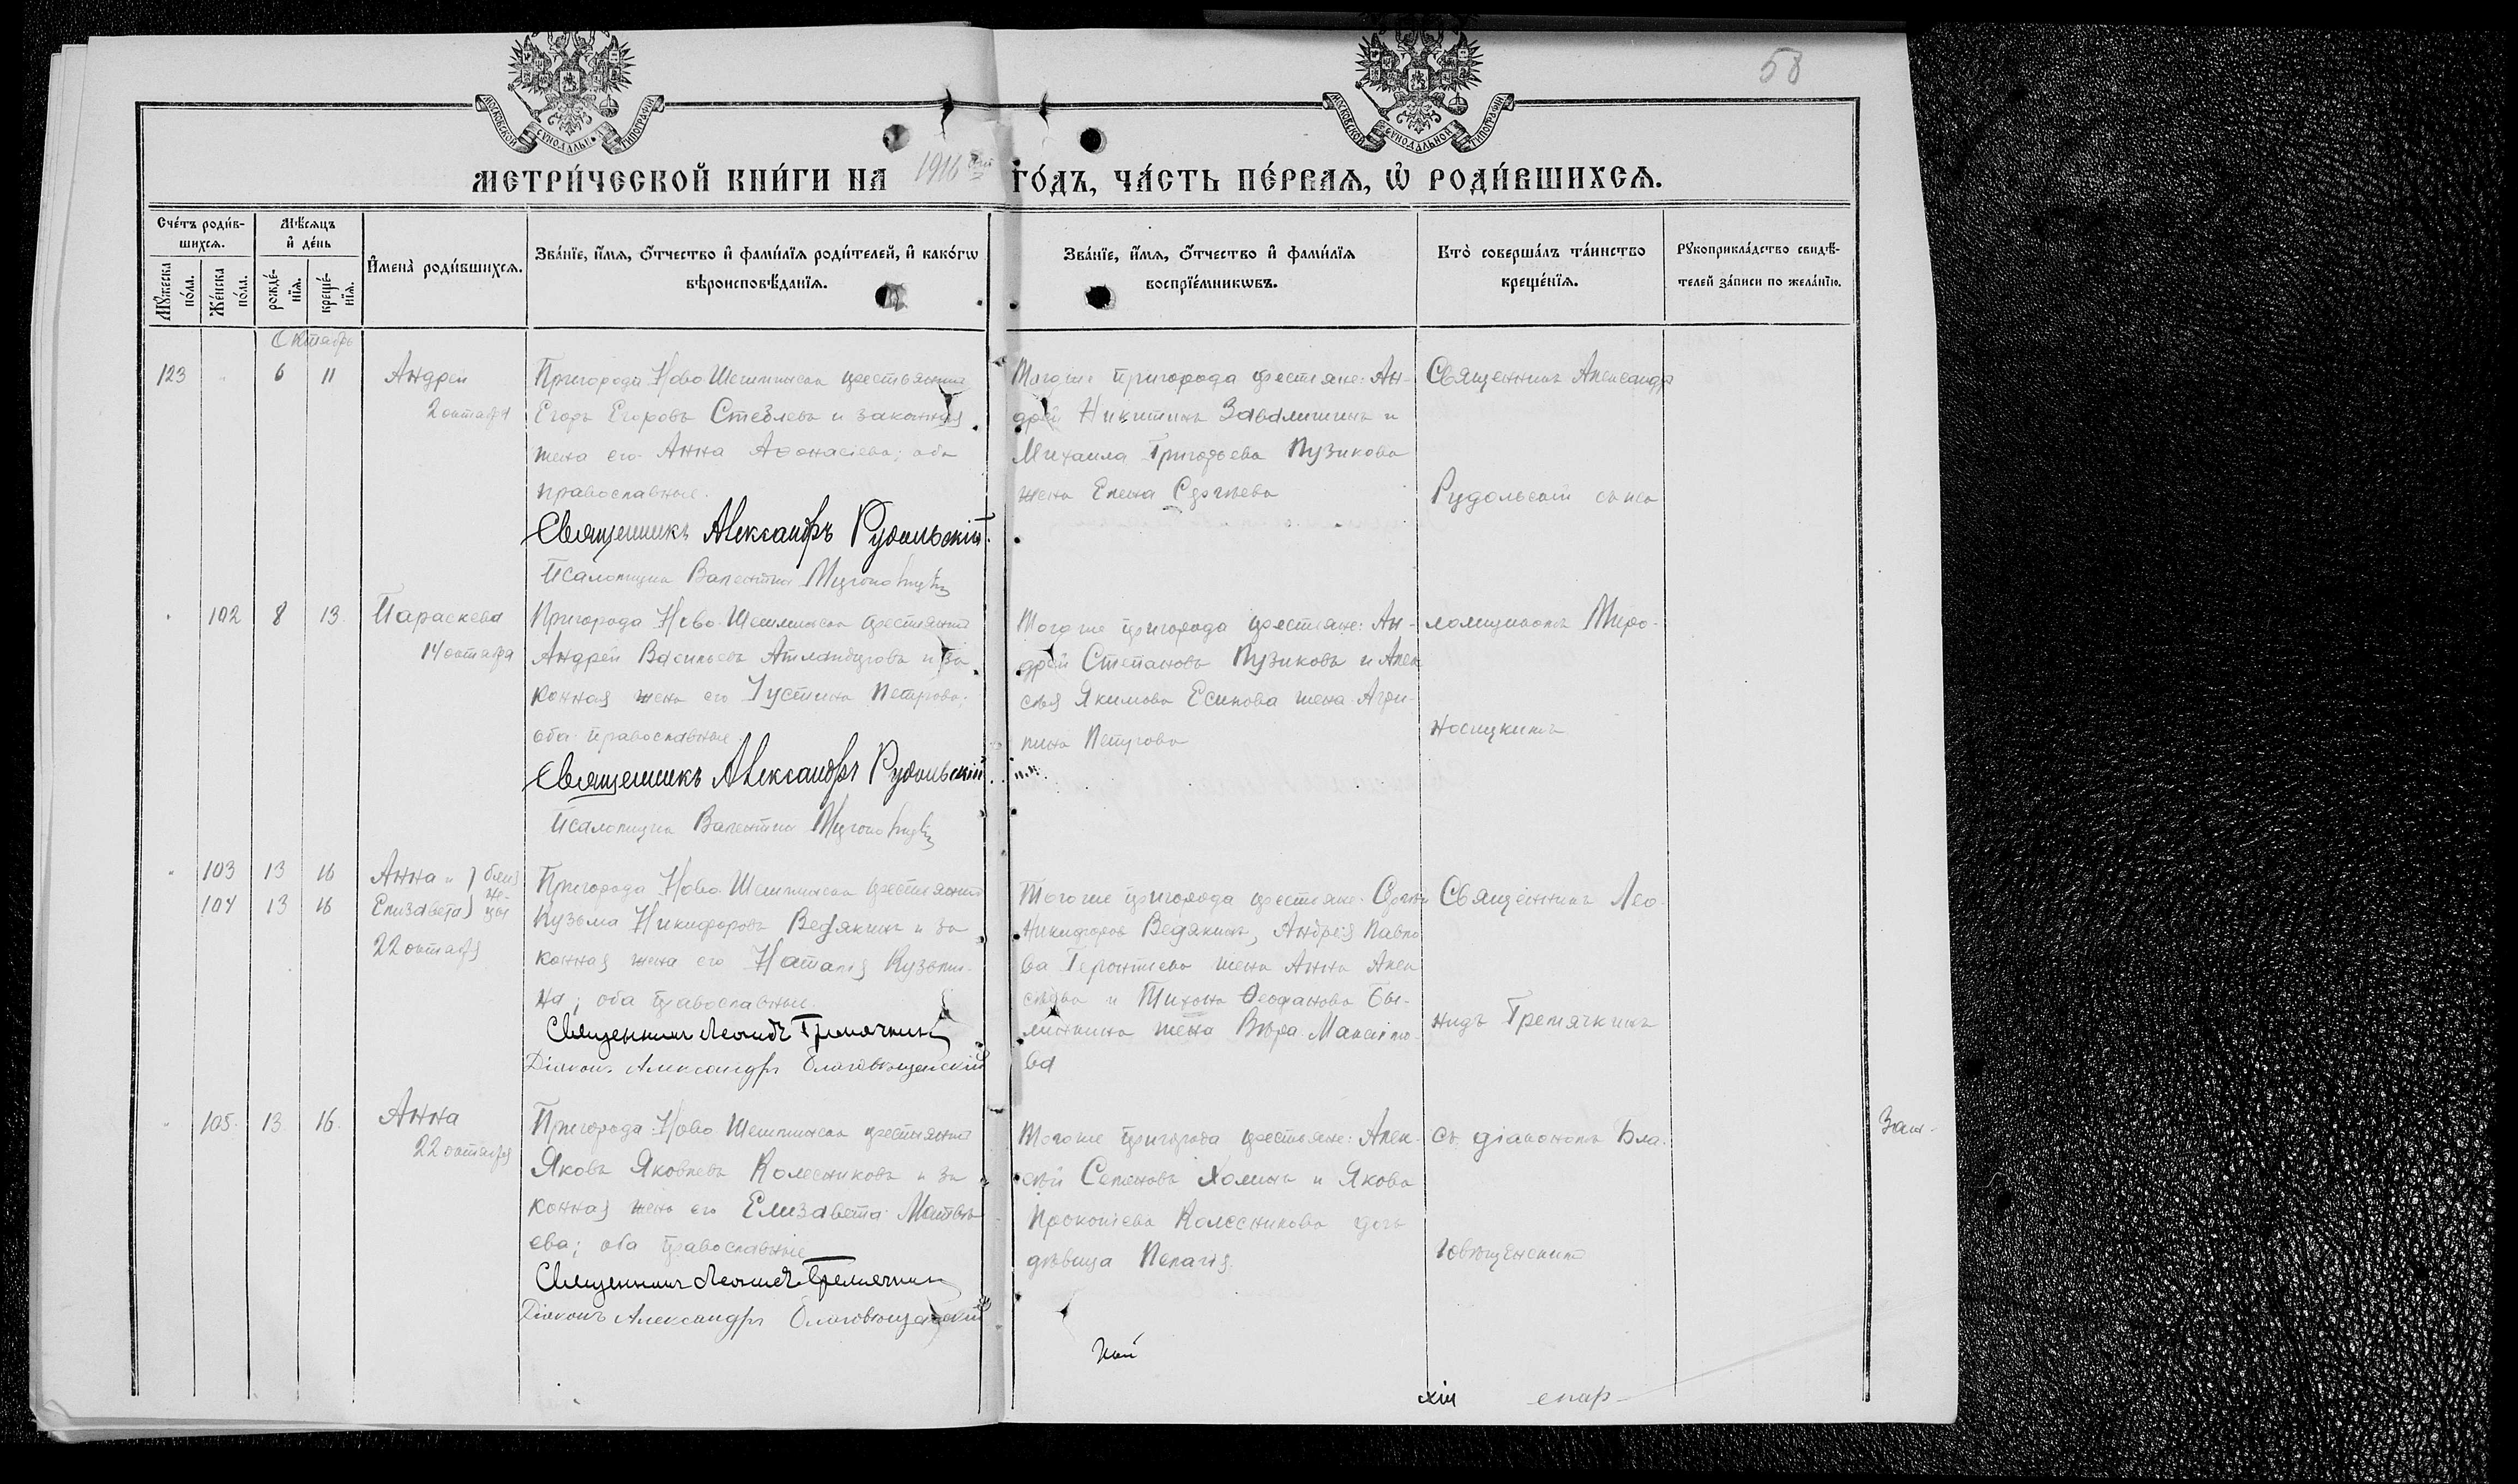 58
МОСКОВСКОЙ СѴНОДАЛЬНОЙ ТИПОГРАФІИ
МОСКОВСКОЙ СѴНОДАЛЬНОЙ ТИПОГРАФІИ
МЕТРИ́ЧЕСКОЙ КНИ́ГИ НА 1916 ГО́ДЪ, ЧА́СТЬ ПЕ́РВАѦ, Ѽ РОДИ́ВШИХСѦ.
Сче́тъ роди́в-
шихсѧ.
Мꙋ́жеска по́ла.
Же́нска по́ла.
Мѣ́сѧцъ
и҆ де́нь
рожде́-
нїѧ.
креще́-
нїѧ.
И҆мена̀ роди́вшихсѧ.
Зва́нїе, и҆́мѧ, ѻ҆́тчество и҆ фами́лїѧ роди́телей, и҆ како́гѡ
вѣроисповѣ́данїѧ.
Зва́нїе, и҆́мѧ, ѻ҆́тчество и҆ фами́лїѧ
воспрїе́мникѡвъ.
Кто̀ соверша́лъ та́инство
креще́нїѧ.
Рꙋкоприкла́дство свидѣ́-
телей за́писи по жела́нїю.
Октябрь
123 6 11
Андрей
2 октября
Пригорода Ново Шешминска крестьянинъ
Егоръ Егоровъ Стеблевъ и законная
жена его Анна Аѳонасіева; оба
православные.
Священникъ Александръ Рудольскій.
Псаломщикъ Валентинъ
Тогоже пригорода крестьяне: Ан-
дрей Никитинъ Завалишинъ и
Михаила Григорьева Пузикова
жена Елена Сергѣева
Священникъ Александръ
Рудольскій съ пса
102 8 13
Параскева
14 октября
Пригорода Ново Шешминска крестьянинъ
Андрей Васильевъ и за
конная жена его Іустина Петрова;
оба православные.
Священникъ Александръ Рудольскій.
Псаломщикъ Валентинъ
Тогоже пригорода крестьяне: Ан-
дрей Степановъ Пузиковъ и Алек
сѣя Якимова Есипова жена Агри-
пина Петрова
ломщикомъ Миро-
носицкимъ
103 13 16
104 13 16
Анна и близ
Елизавета не-
цы
22 октября
Пригорода Ново Шешминска крестьянинъ
Кузьма Никифоровъ Ведякинъ и за
конная жена его Наталія Кузьми-
на; оба православные.
Священникъ Леонидъ Гремячкинъ
Діаконъ Александръ Благовѣщенскій
Тогоже пригорода крестьяне: Сергѣй
Никифоровъ Ведякинъ, Андрея Павло
ва Геронтіева жена Анна Алек
сѣева и Тихона Ѳеофанова
жена Вѣра Максимо-
ва
Священникъ Лео-
нидъ Гремячкинъ
105 13 16
Анна
22 октября
Пригорода Ново Шешминска крестьянинъ
Яковъ Яковлевъ Колесниковъ и за
конная жена его Елизавета Матвѣ
ева; оба православные
Священникъ Леонидъ Гремячкинъ
Діаконъ Александръ Благовѣщенскій
Тогоже пригорода крестьяне: Алек-
сѣй Семеновъ Хоминъ и Якова
Прокопіева Колесникова дочь
дѣвица Пелагія.
съ діакономъ Бла-
говѣщенскимъ